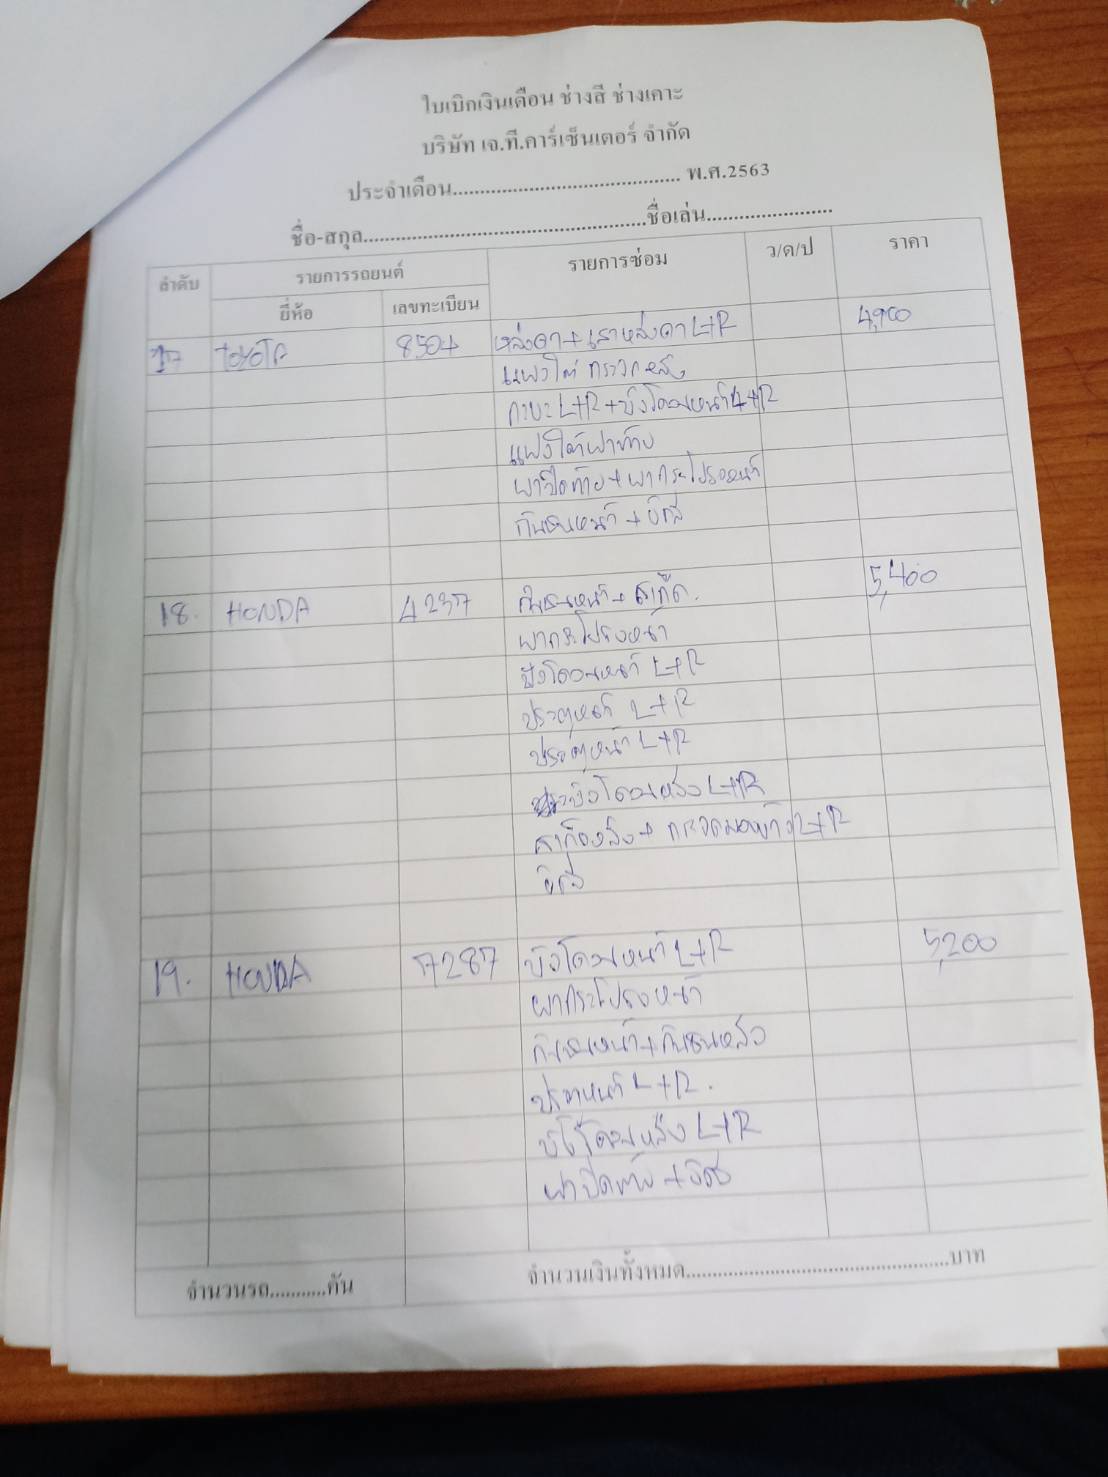 ใบเบิกเงินเดือน ช่างสี ช่างเคาะ
บริษัท เจ.ที.คาร์เซ็นเตอร์ จำกัด
ประจำเดือน.......................................... พ.ศ.2563
ชื่อ-สกุล....................................................ชื่อเล่น.......................
ลำดับ รายการรถยนต์ รายการซ่อม ว/ด/ป ราคา
ยี่ห้อ เลขทะเบียน
17 TOYOTA หลังคา+เสาหลังคา L+R 4,900
แผงใต้ กระจกหลัง
กะบะ L+R+บังโคลนหน้า L+R
แผงใต้ฝาท้าย
ฝาปิดท้าย+ฝากระโปรงหน้า
กันชนหน้า +
18. HONDA 4237 กันชนหน้า+ 5,400
ฝากระโปรงหน้า
บังโคลนหน้า L+R
ประตูหน้า L+R
ประตูหน้า L+R
บังโคลนหลัง L+R
+ กระจกมองข้าง L+R
19. HONDA 7287 บังโคลนหน้า L+R 5,200
ฝากระโปรงหน้า
กันชนหน้า+กันชนหลัง
ประตูหน้า L+R.
บังโคลนหลัง L+R
ฝาปิดท้าย +
จำนวนรถ...........คัน จำนวนเงินทั้งหมด.................................................บาท